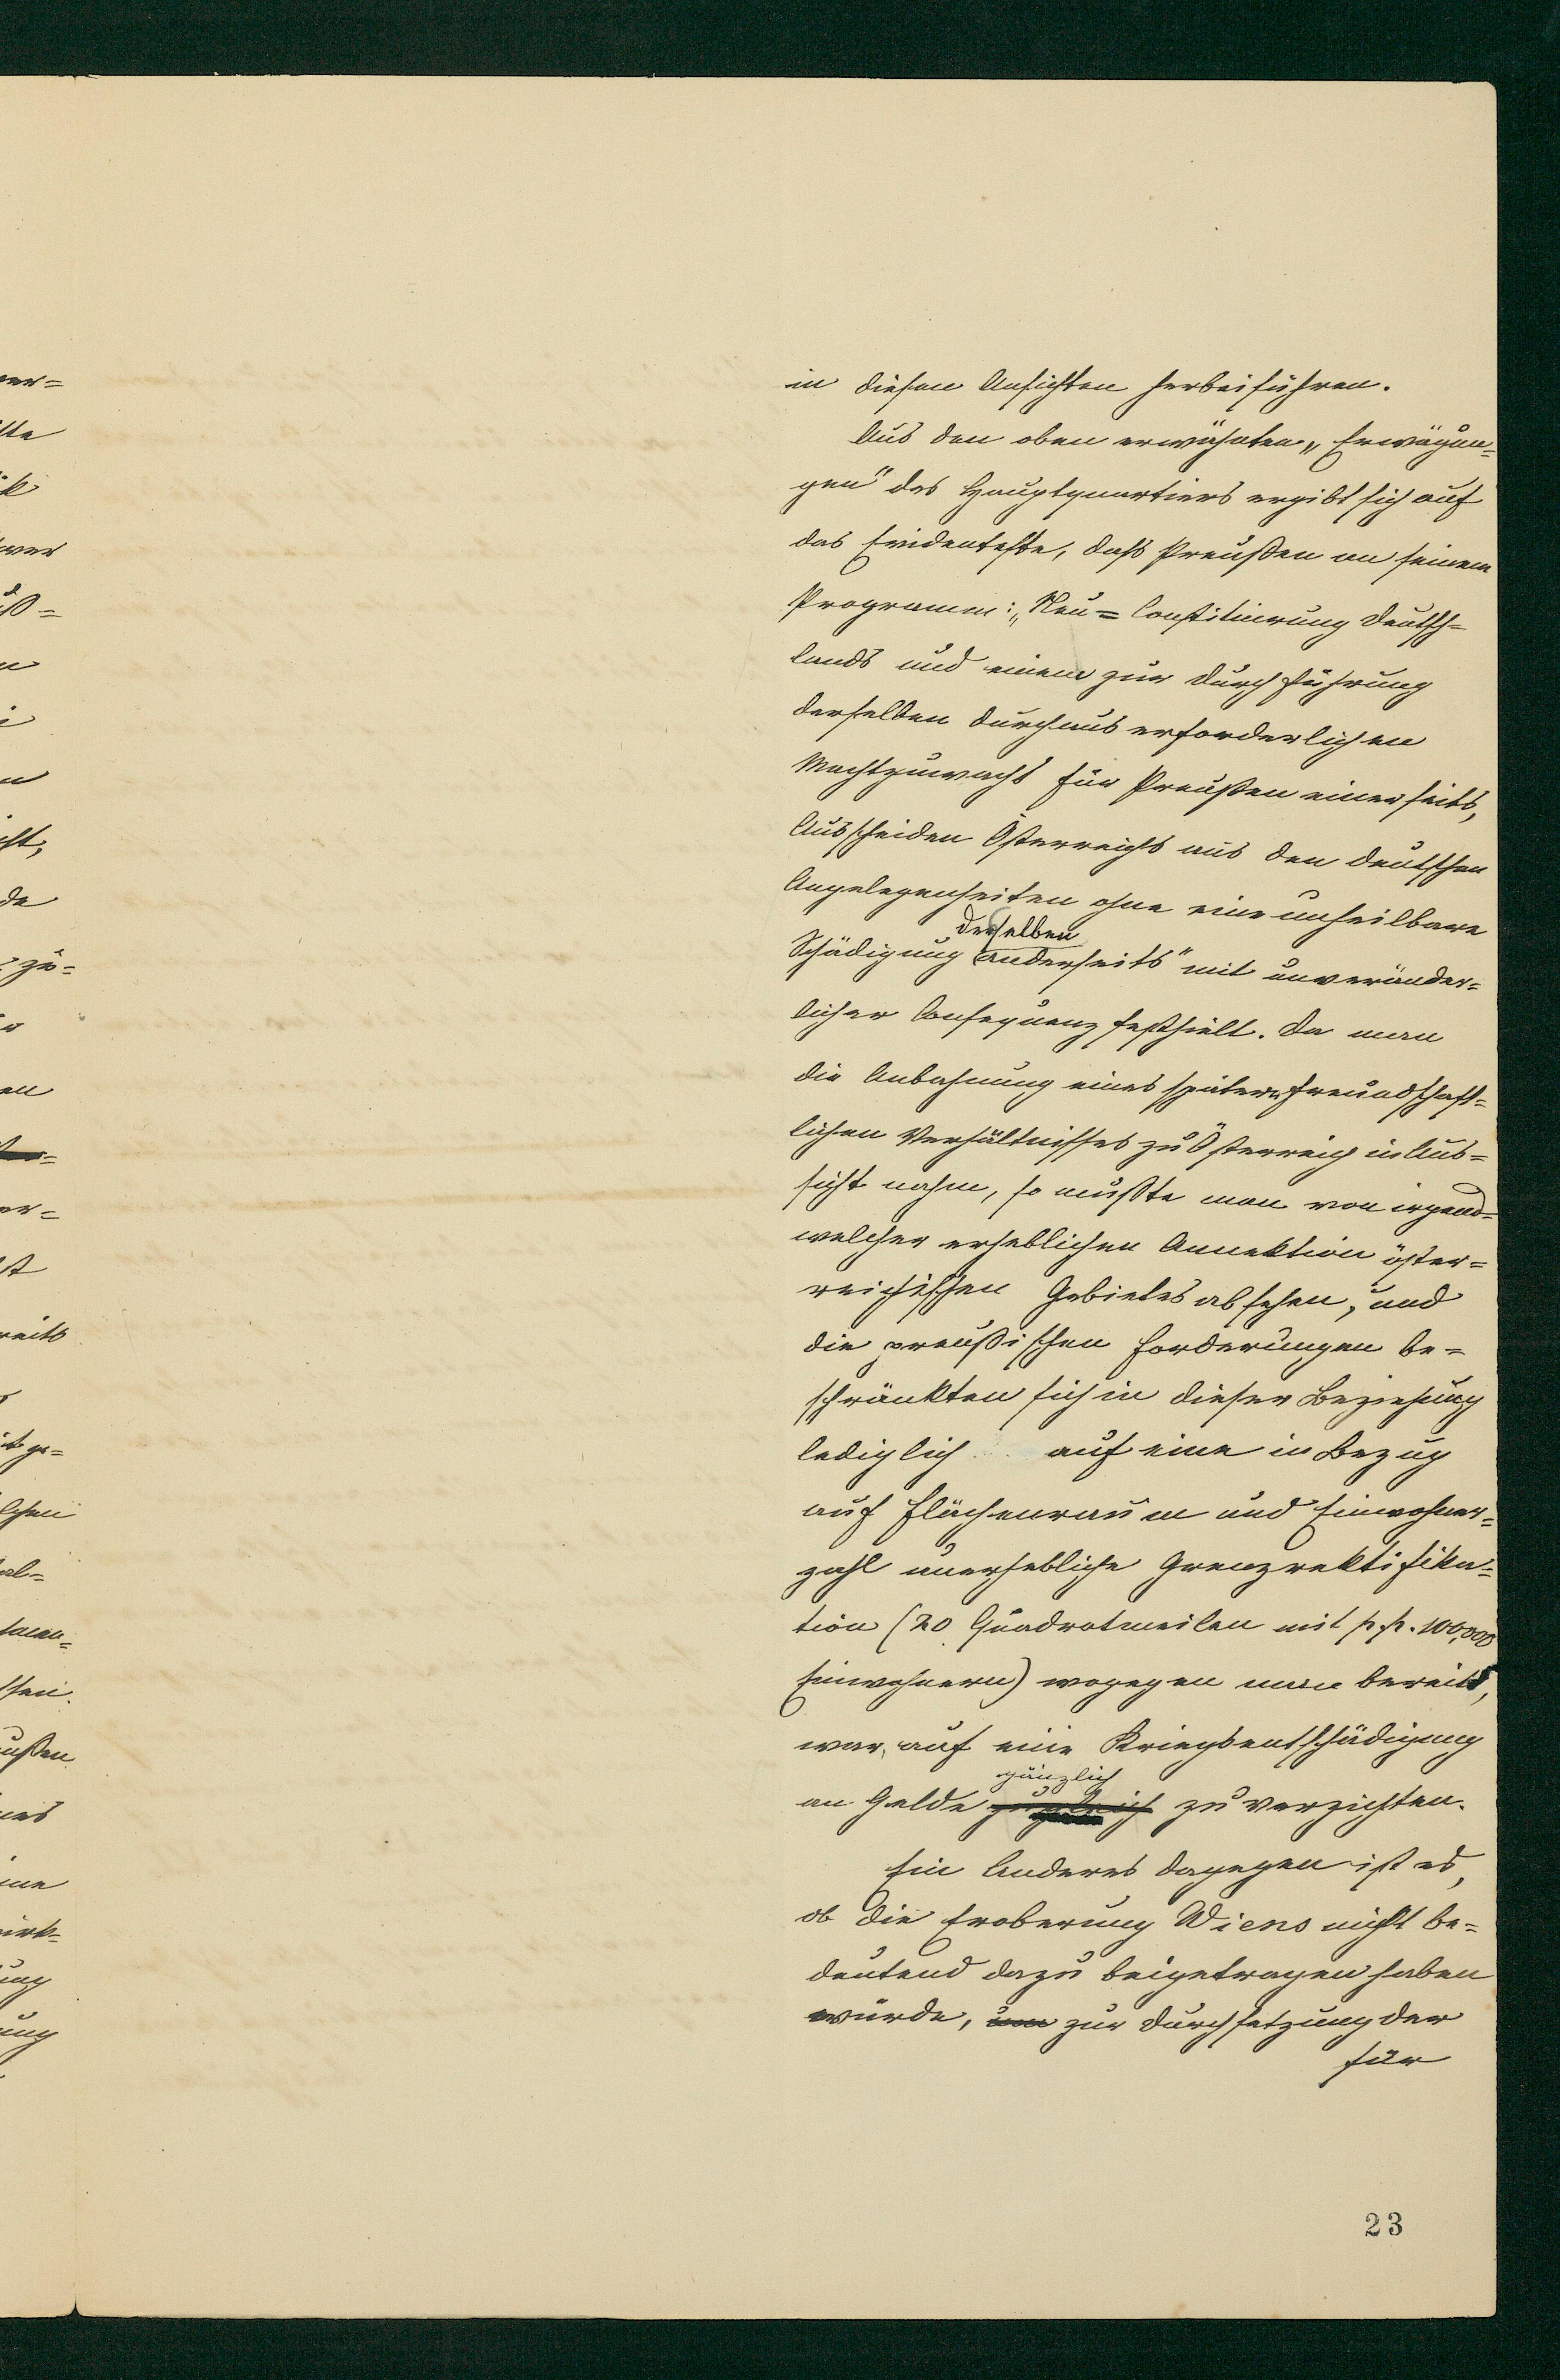 in diesen Ansichten herbeiführen.
Aus den oben erwähnten „Erwägun=
gen" des Hauptquartiers ergibt sich auf
das Evidenteste, daß Preußen an seinem
Programm: „Neu=Constituirung Deutsch=
lands und einem zur Durchführung
derselben durchaus erforderlichen
Machtzuwachs für Preußen einerseits,
Ausscheiden Österreichs aus den deutschen
Angelegenheiten ohne eine unheilbare
derselben
Schädigung anderseits" mit unveränder=
licher Consequenz festhielt. Da man
die Anbahnung eines spätern freundschaft=
lichen Verhältnisses zu Österreich in Aus=
sicht nahm, so mußte man von irgend=
welcher erheblichen Annektion öster=
reichischen Gebietes absehen, und
die preußischen Forderungen be=
schränkten sich in dieser Beziehung
lediglich auf eine in Bezug
auf Flächenraum und Einwohner=
zahl unerhebliche Grenzrektifika=
tion (20 Quadratmeilen mit p.p. 100,000
Einwohnern) wogegen man bereit,
war, auf eine Kriegsentschädigung
gänzlich
an Gelde zu verzichten.
Ein Anderes dagegen ist es,
ob die Eroberung Wiens nicht be=
deutend dazu beigetragen haben
würde, um zur Durchsetzung der
für
23